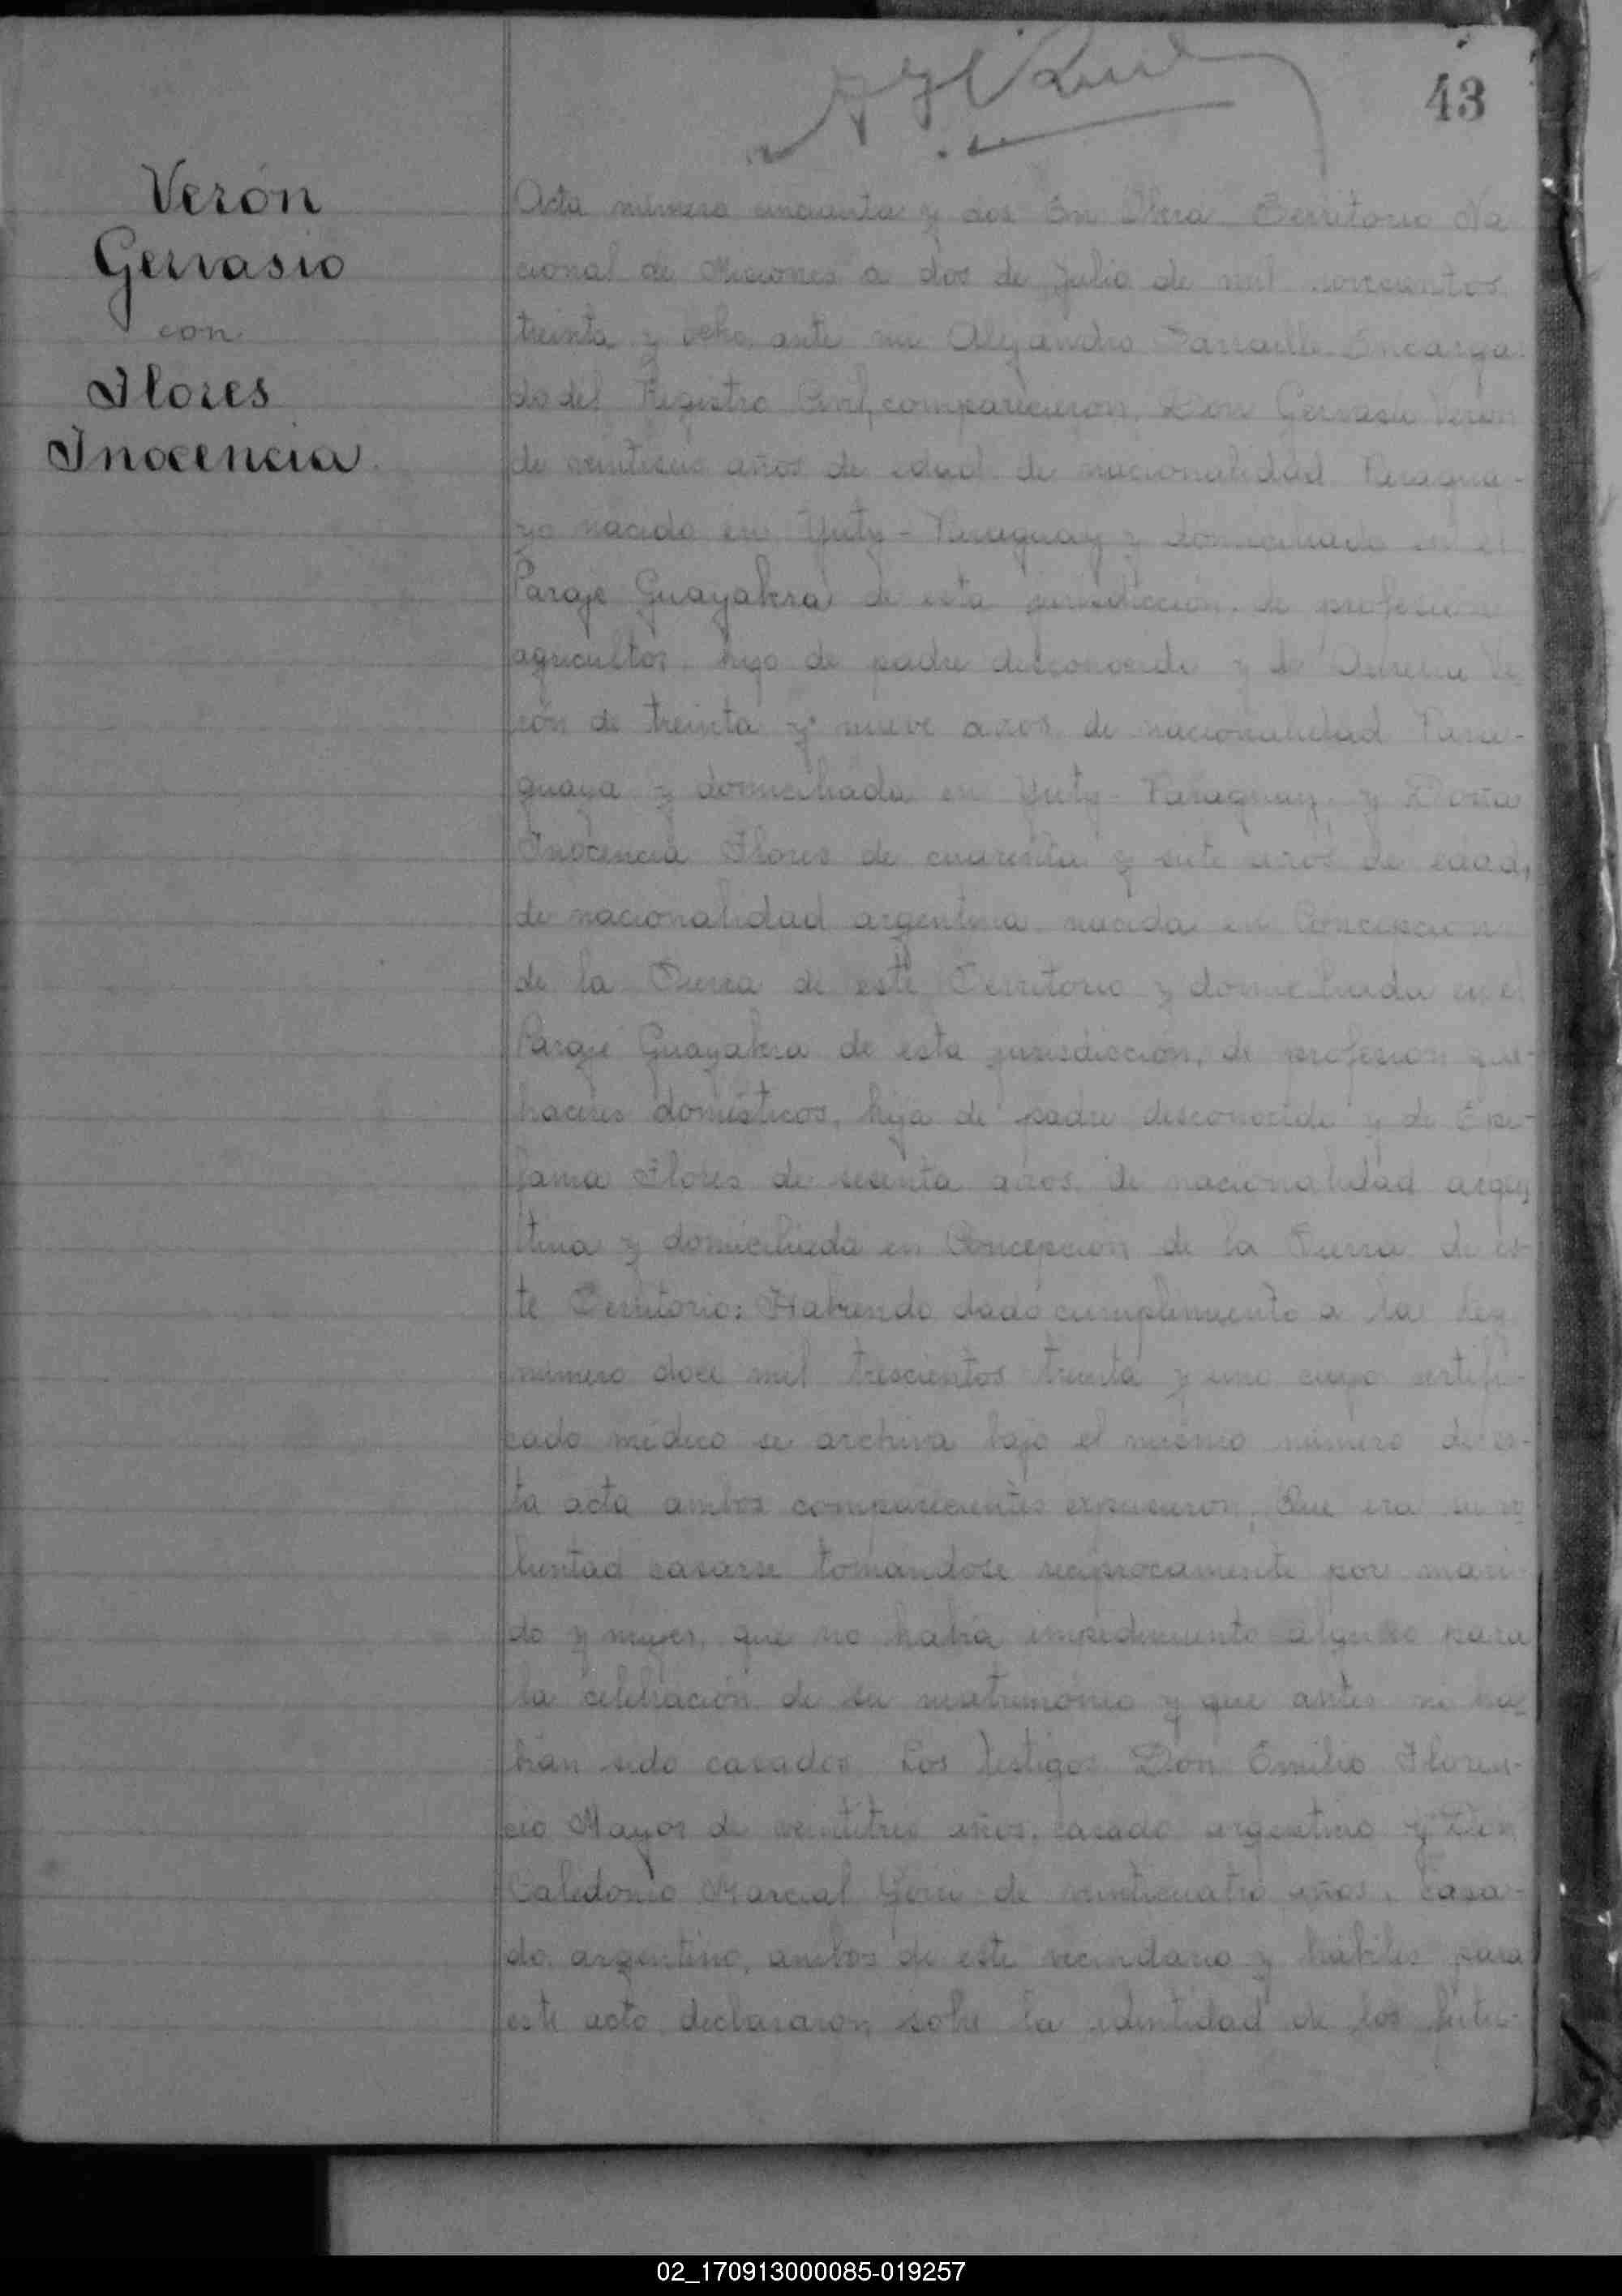 43
Verón
Gervasio
con
Flores
Inocencia
Acta número cincuenta y dos En Oberá Territorio Na
cional de Misiones a dos de Julio de mil novecientos
treinta y ocho, ante mi Alejandro Encarga
do del Registro Civil, comparecieron, Don Gervasio Verón
de años de edad de nacionalidad Paragua-
yo nacido en Yuty - Paraguay y domiciliado en el
Paraje Guayabera de esta jurisdicción, de profesión
agricultor, hijo de padre desconocido y de Ve
rón de treinta y nueve años de nacionalidad Para-
guaya y domiciliada en Yuty - Paraguay, y Doña
Inocencia Flores de cuarenta y siete años de edad,
de nacionalidad argentina nacida en Concepción
de la Sierra de este Territorio y domiciliada en el
Paraje Guayabera de esta jurisdicción, de profesión que-
haceres domésticos, hija de padre desconocido y de Epi-
fania Flores de sesenta años de nacionalidad argen
tina y domiciliada en Concepción de la Sierra de es-
te Territorio: Habiendo dado cumplimiento a la Ley
número doce mil trescientos treinta y uno cuyo certifi-
cado médico se archiva bajo el mismo número de es-
ta acta ambos comparecientes expusieron, Que era su vo
luntad casarse tomandose reciprocamente por mari-
do y mujer, que no había impedimento alguno para
la celebración de su matrimonio y que antes no ha-
bían sido casados Los testigos Don Emilio Floren-
cio Mayor de veintitres años, casado argentino y Don
Caledonio Marcial de veinticuatro años, casa-
do, argentino, ambos de este vecindario y hábiles para
este acto declararon sobre la identidad de los futu-
02_170913000085-019257